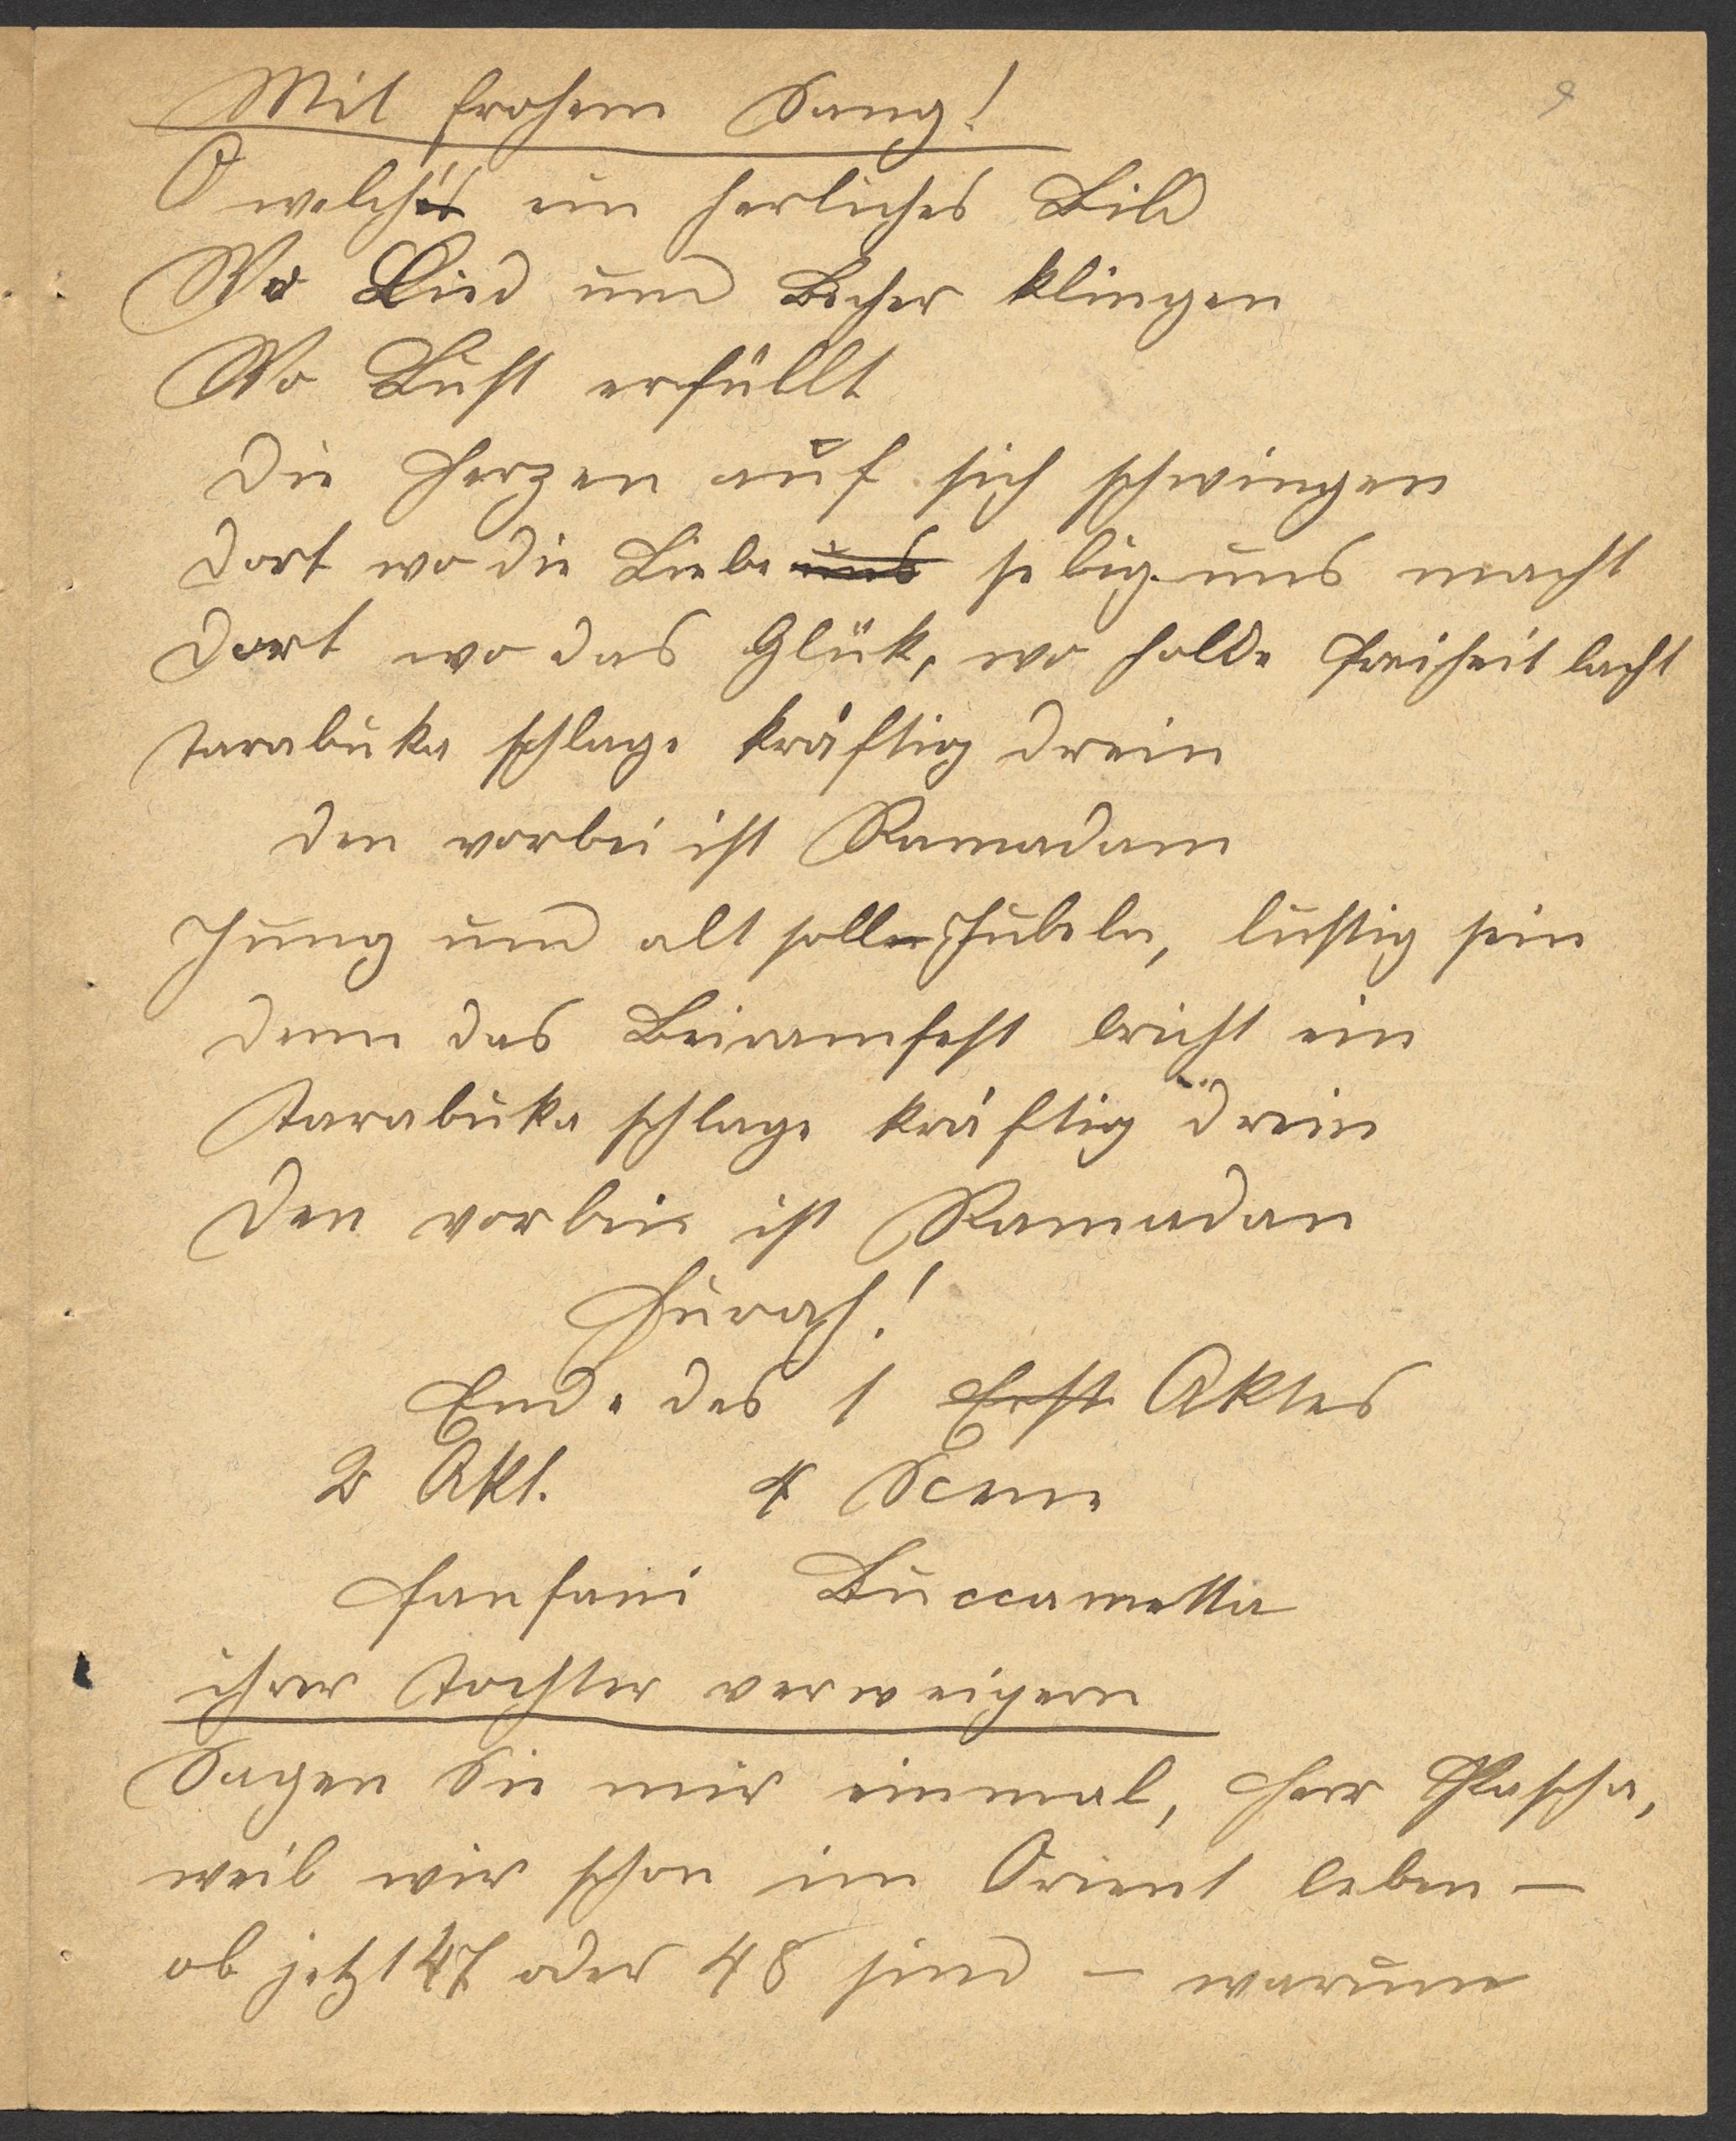 Mit frohem Sang!
9
O welch's ein herliches Bild
Wo Lied und Becher klingen
Wo Lust erfüllt
die Herzen auf sich schwingen
dort wo die Liebe uns selig uns macht
dort wo das Glük, wo holde Freiheit lacht
tarabuka schlage kräftig drein
den vorbei ist Ramadam
Jung und alt sollen Jubeln, lustig sein
denn das Beiramfest bricht ein
tarabuka schlage kräftig drein
den vorbei ist Ramadan
Hurah!
Ende des 1 Erst Aktes
2 Akt. 4 Scene
Fanfani Buccametta
ihrer Tochter verweigern
Sagen Sie mir einmal, Herr Pascha,
weil wir schon im Orient leben —
ob jetzt 47 oder 48 sind — warum